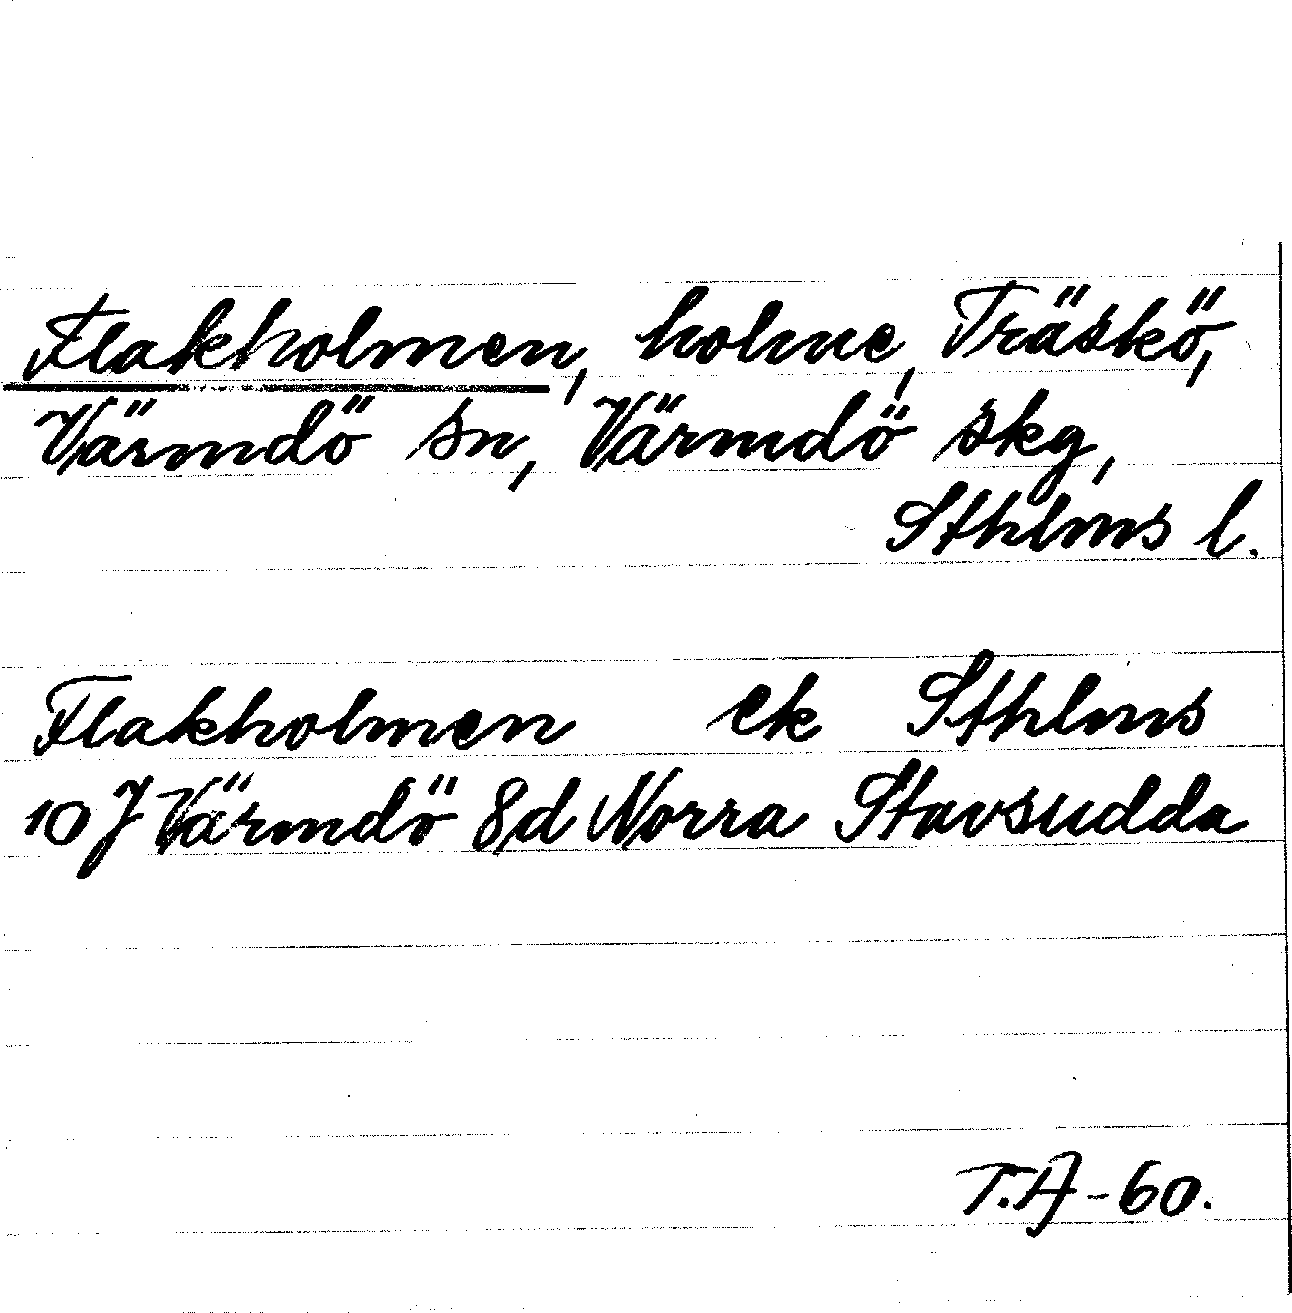 Flakholmen, holme, Träskö,
Värmdö sn, Värmdö skg,
Sthlms l.
Flakholmen ek Sthlms
10 J Värmdö 8d Norra Stavsudda
T.A-60.